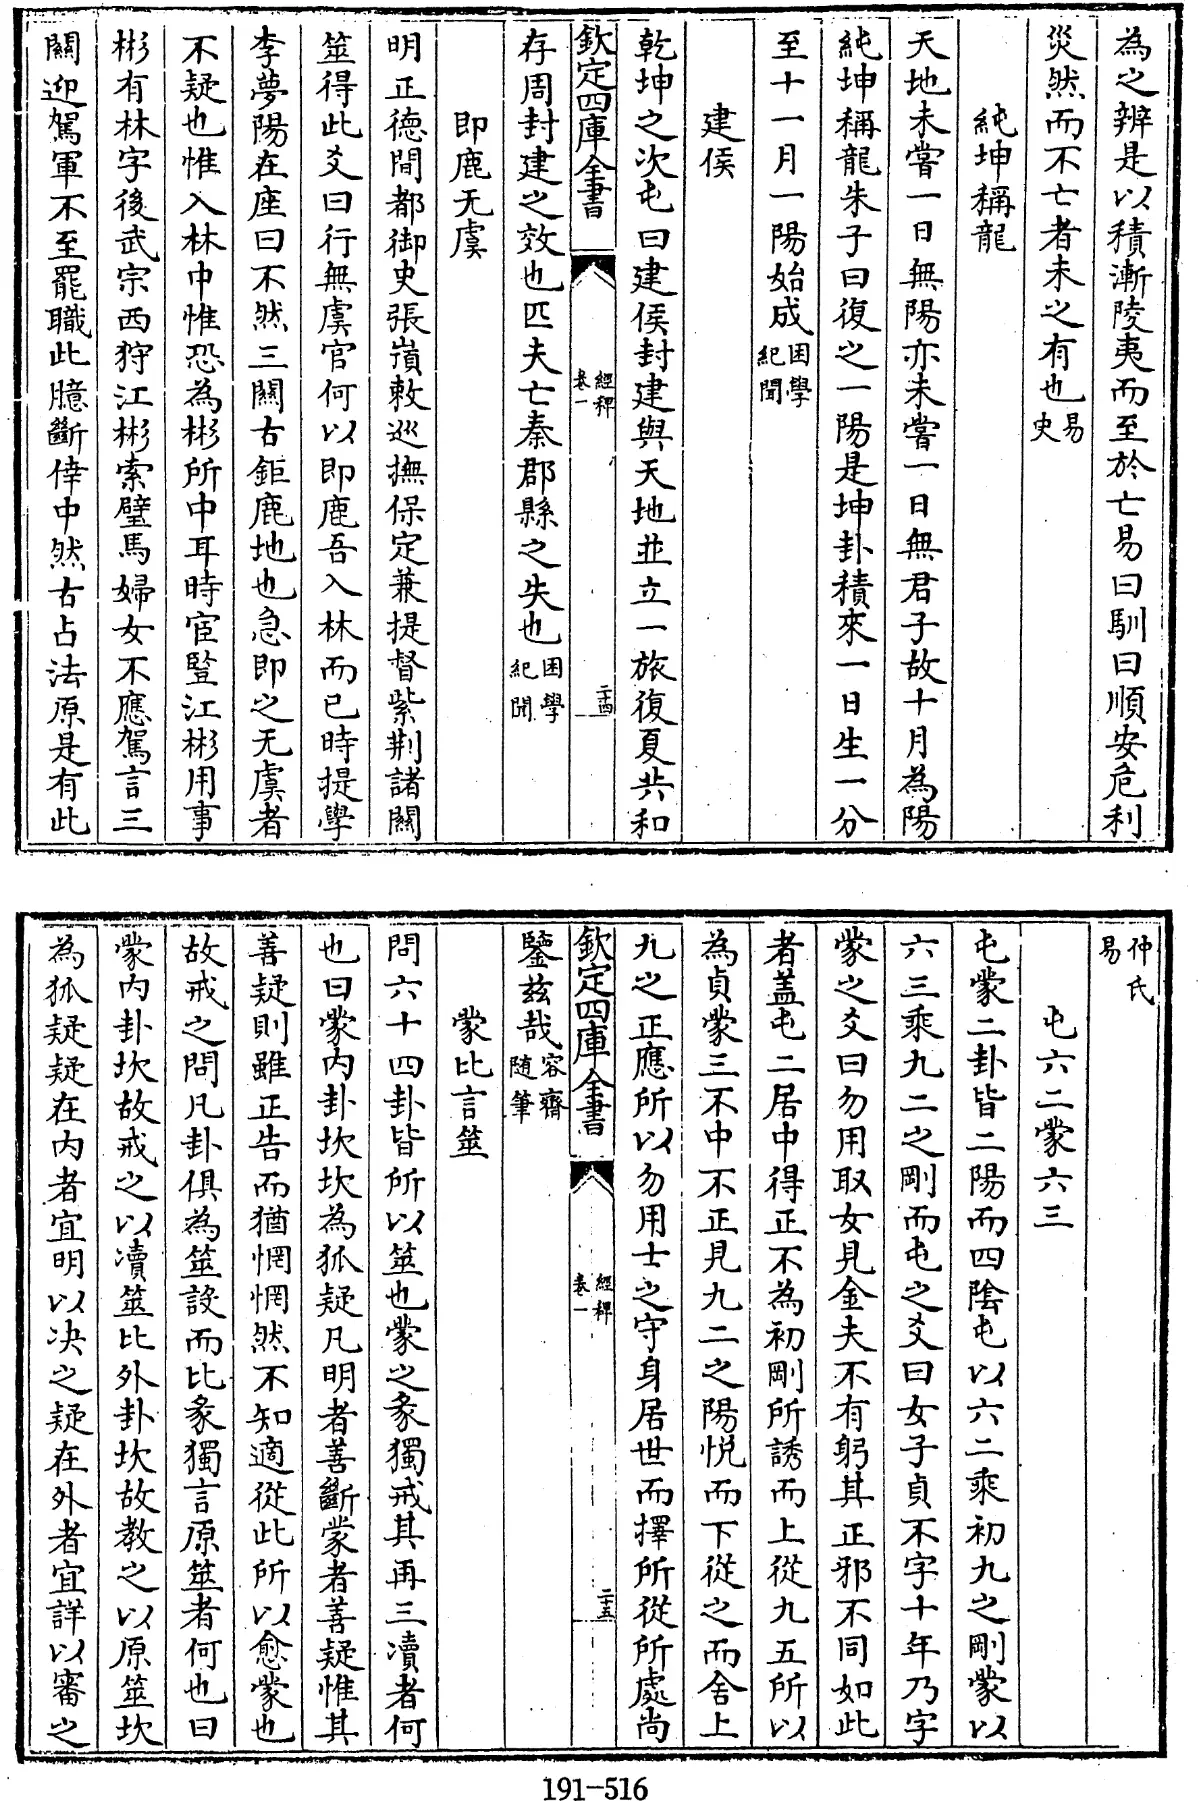 為之辨是以積漸陵夷而至於亡易曰馴曰順安危利
災然而不亡者未之有也易史
純坤稱龍
天地未嘗一日無陽亦未嘗一日無君子故十月為陽
純坤稱龍朱子曰復之一陽是坤卦積來一日生一分
至十一月一陽始成困學紀聞
建侯
乾坤之次屯曰建侯封建與天地並立一旅復夏共和
欽定四庫全書
經稗
卷一
二十四
存周封建之效也匹夫亡秦郡縣之失也困學紀聞
即鹿无虞
明正德間都御史張嵿敕巡撫保定兼提督紫荆諸關
筮得此爻曰行無虞官何以即鹿吾入林而已時提學
李夢陽在座曰不然三關古鉅鹿地也急即之无虞者
不疑也惟入林中惟恐為彬所中耳時宦豎江彬用事
彬有林字後武宗西狩江彬索璧馬婦女不應駕言三
關迎駕軍不至罷職此臆斷倖中然古占法原是有此
仲氏易
屯六二蒙六三
屯蒙二卦皆二陽而四陰屯以六二乘初九之剛蒙以
六三乘九二之剛而屯之爻曰女子貞不字十年乃字
蒙之爻曰勿用取女見金夫不有躬其正邪不同如此
者蓋屯二居中得正不為初剛所誘而上從九五所以
為貞蒙三不中不正見九二之陽悦而下從之而舍上
九之正應所以勿用士之守身居世而擇所從所處尚
欽定四庫全書
經稗
卷一
二十五
鑒兹哉容齋随筆
蒙比言筮
問六十四卦皆所以筮也蒙之彖獨戒其再三瀆者何
也曰蒙内卦坎坎為狐疑凡明者善斷蒙者善疑惟其
善疑則雖正告而猶惘惘然不知適從此所以愈蒙也
故戒之問凡卦俱為筮設而比彖獨言原筮者何也曰
蒙内卦坎故戒之以瀆筮比外卦坎故教之以原筮坎
為狐疑疑在内者宜明以决之疑在外者宜詳以審之
191-516